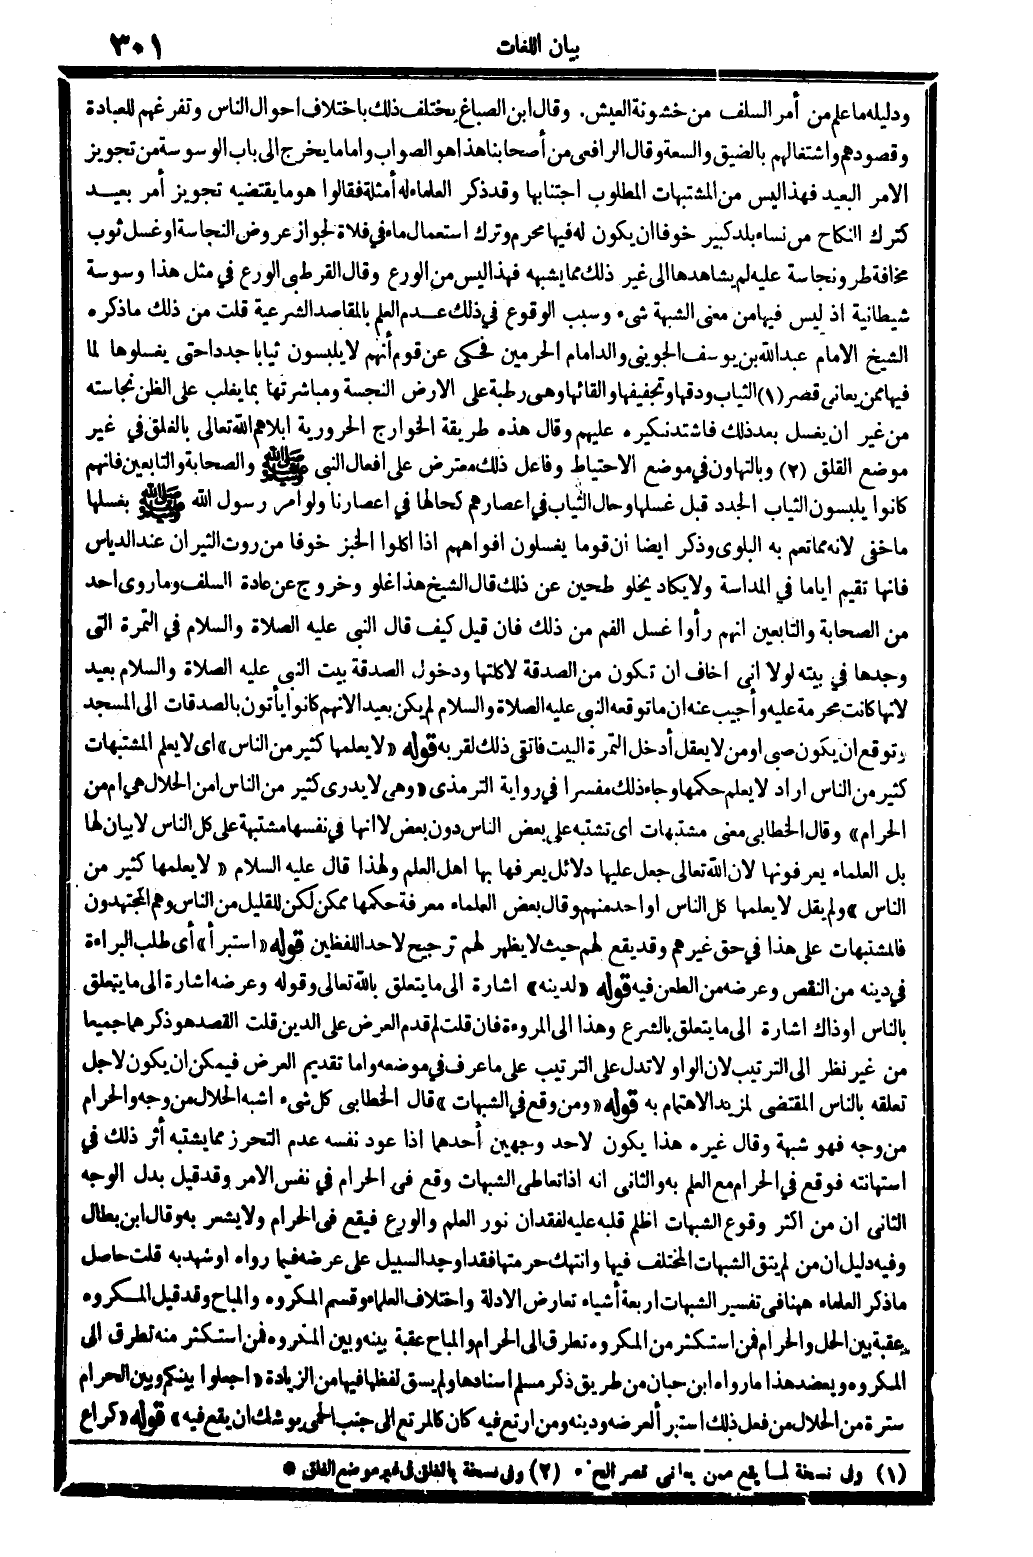 بيان اللغات
٣٠١
ودليله ما علم من أمر السلف من خشونة العيش. وقال ابن الصباغ يختلف ذلك باختلاف احوال الناس وتفرغهم للعبادة
وقصودهم واشتغالهم بالضيق والسعة وقال الرافعى من أصحابنا هذا هو الصواب واما ما يخرج الى باب الوسوسة من تجويز
الامر البعيد فهذا ليس من المشتبهات المطلوب اجتنابها وقد ذكر العلماء له أمثلة فقالوا هو ما يقتضيه تجويز أمر بعيد
كترك النكاح من نساء بلد كبير خوفا ان يكون له فيها محرم وترك استعمال ماء في فلاة لجواز عروض النجاسة او غسل ثوب
مخافة طرو نجاسة عليه لم يشاهدها الى غير ذلك مما يشبهه فهذا ليس من الورع وقال القرطبى الورع في مثل هذا وسوسة
شيطانية اذ ليس فيها من معنى الشبهة شىء وسبب الوقوع في ذلك عدم العلم بالمقاصد الشرعية قلت من ذلك ماذكره
الشيخ الامام عبدالله بن يوسف الجوينى والد امام الحرمين فحكى عن قوم أنهم لا يلبسون ثيابا جددا حتى يغسلوها لما
فيها ممن يعانى قصر (١) الثياب ودقها وتجفيفها والقائها وهى رطبة على الارض النجسة ومباشرتها بما يغلب على الظن نجاسته
من غير ان يغسل بعد ذلك فاشتد نكيره عليهم وقال هذه طريقة الخوارج الحرورية ابلاهم الله تعالى بالغلق في غير
موضع القلق (٢) وبالتهاون في موضع الاحتياط وفاعل ذلك معترض على أفعال النبى ﷺ والصحابة والتابعين فانهم
كانوا يلبسون الثياب الجدد قبل غسلها وحال الثياب في اعصارهم كحالها في اعصارنا ولو امر رسول الله ﷺ بغسلها
ماخفى لانه مما تعم به البلوى وذكر ايضا ان قوما يغسلون افواههم اذا اكلوا الخبز خوفا من روث الثيران عند الدياس
فانها تقيم اياما في المداسة ولا يكاد يخلو طحين عن ذلك قال الشيخ هذا غلو وخروج عن عادة السلف وما روى احد
من الصحابة والتابعين انهم رأوا غسل الفم من ذلك فان قيل كيف قال النبى عليه الصلاة والسلام في التمرة التى
وجدها في بيته لولا انى اخاف ان تكون من الصدقة لاكلتها ودخول الصدقة بيت النبى عليه الصلاة والسلام بعيد
لانها كانت محرمة عليه وأجيب عنه ان ما توقعه النبى عليه الصلاة والسلام لم يكن بعيدا لانهم كانوا يأتون بالصدقات الى المسجد
وتوقع ان يكون صبى او من لا يعقل أدخل التمرة البيت فاتقى ذلك لقربه قوله «لا يعلمها كثير من الناس» اى لا يعلم المشتبهات
كثير من الناس اراد لا يعلم حكمها وجاء ذلك مفسرا في رواية الترمذى «وهى لا يدرى كثير من الناس امن الحلال هى ام من
الحرام» وقال الخطابى معنى مشتبهات اى تشتبه على بعض الناس دون بعض لا انها في نفسها مشتبهة على كل الناس لا بيان لها
بل العلماء يعرفونها لان الله تعالى جعل عليها دلائل يعرفها بها اهل العلم ولهذا قال عليه السلام «لا يعلمها كثير من
الناس» ولم يقل لا يعلمها كل الناس او احد منهم وقال بعض العلماء معرفة حكمها ممكن لكن للقليل من الناس وهم المجتهدون
فالمشتبهات على هذا في حق غيرهم وقد يقع لهم حيث لا يظهر لهم ترجيح لاحد اللفظين قوله «استبرأ» أى طلب البراءة
في دينه من النقص وعرضه من الطعن فيه قوله «لدينه» اشارة الى ما يتعلق بالله تعالى وقوله وعرضه اشارة الى ما يتعلق
بالناس او ذاك اشارة الى ما يتعلق بالشرع وهذا الى المروءة فان قلت لم قدم العرض على الدين قلت القصد هو ذكرهما جميعا
من غير نظر الى الترتيب لان الواو لا تدل على الترتيب على ما عرف في موضعه واما تقديم العرض فيمكن ان يكون لاجل
تعلقه بالناس المقتضى لمزيد الاهتمام به قوله «ومن وقع في الشبهات» قال الخطابى كل شىء اشبه الحلال من وجه والحرام
من وجه فهو شبهة وقال غيره هذا يكون لاحد وجهين أحدهما اذا عود نفسه عدم التحرز مما يشتبه أثر ذلك في
استهانته فوقع في الحرام مع العلم به والثانى انه اذا تعاطى الشبهات وقع فى الحرام في نفس الامر وقد قيل بدل الوجه
الثانى ان من اكثر وقوع الشبهات اظلم قلبه عليه لفقدان نور العلم والورع فيقع فى الحرام ولا يشعر به وقال ابن بطال
وفيه دليل ان من لم يتق الشبهات المختلف فيها وانتهك حرمتها فقد اوجد السبيل على عرضه فيما رواه او شهد به قلت حاصل
ماذكر العلماء ههنا فى تفسير الشبهات اربعة أشياء تعارض الادلة واختلاف العلماء وقسم المكروه والمباح وقد قيل المكروه
عقبة بين الحل والحرام فمن استكثر من المكروه تطرق الى الحرام والمباح عقبة بينه وبين المكروه فمن استكثر منه تطرق الى
المكروه ويعضد هذا ما رواه ابن حبان من طريق ذكر مسلم اسنادها ولم يسق لفظها فيها من الزيادة «اجعلوا بينكم وبين الحرام
سترة من الحلال من فعل ذلك استبرأ لعرضه ودينه ومن ارتع فيه كان كالمرتع الى جنب الحمى يوشك ان يقع فيه» قوله «كراع
(١) وفى نسخة لما يقع ممن يعانى قصر الخ • (٢) وفى نسخة بالغلق فى غير موضع الغلق •